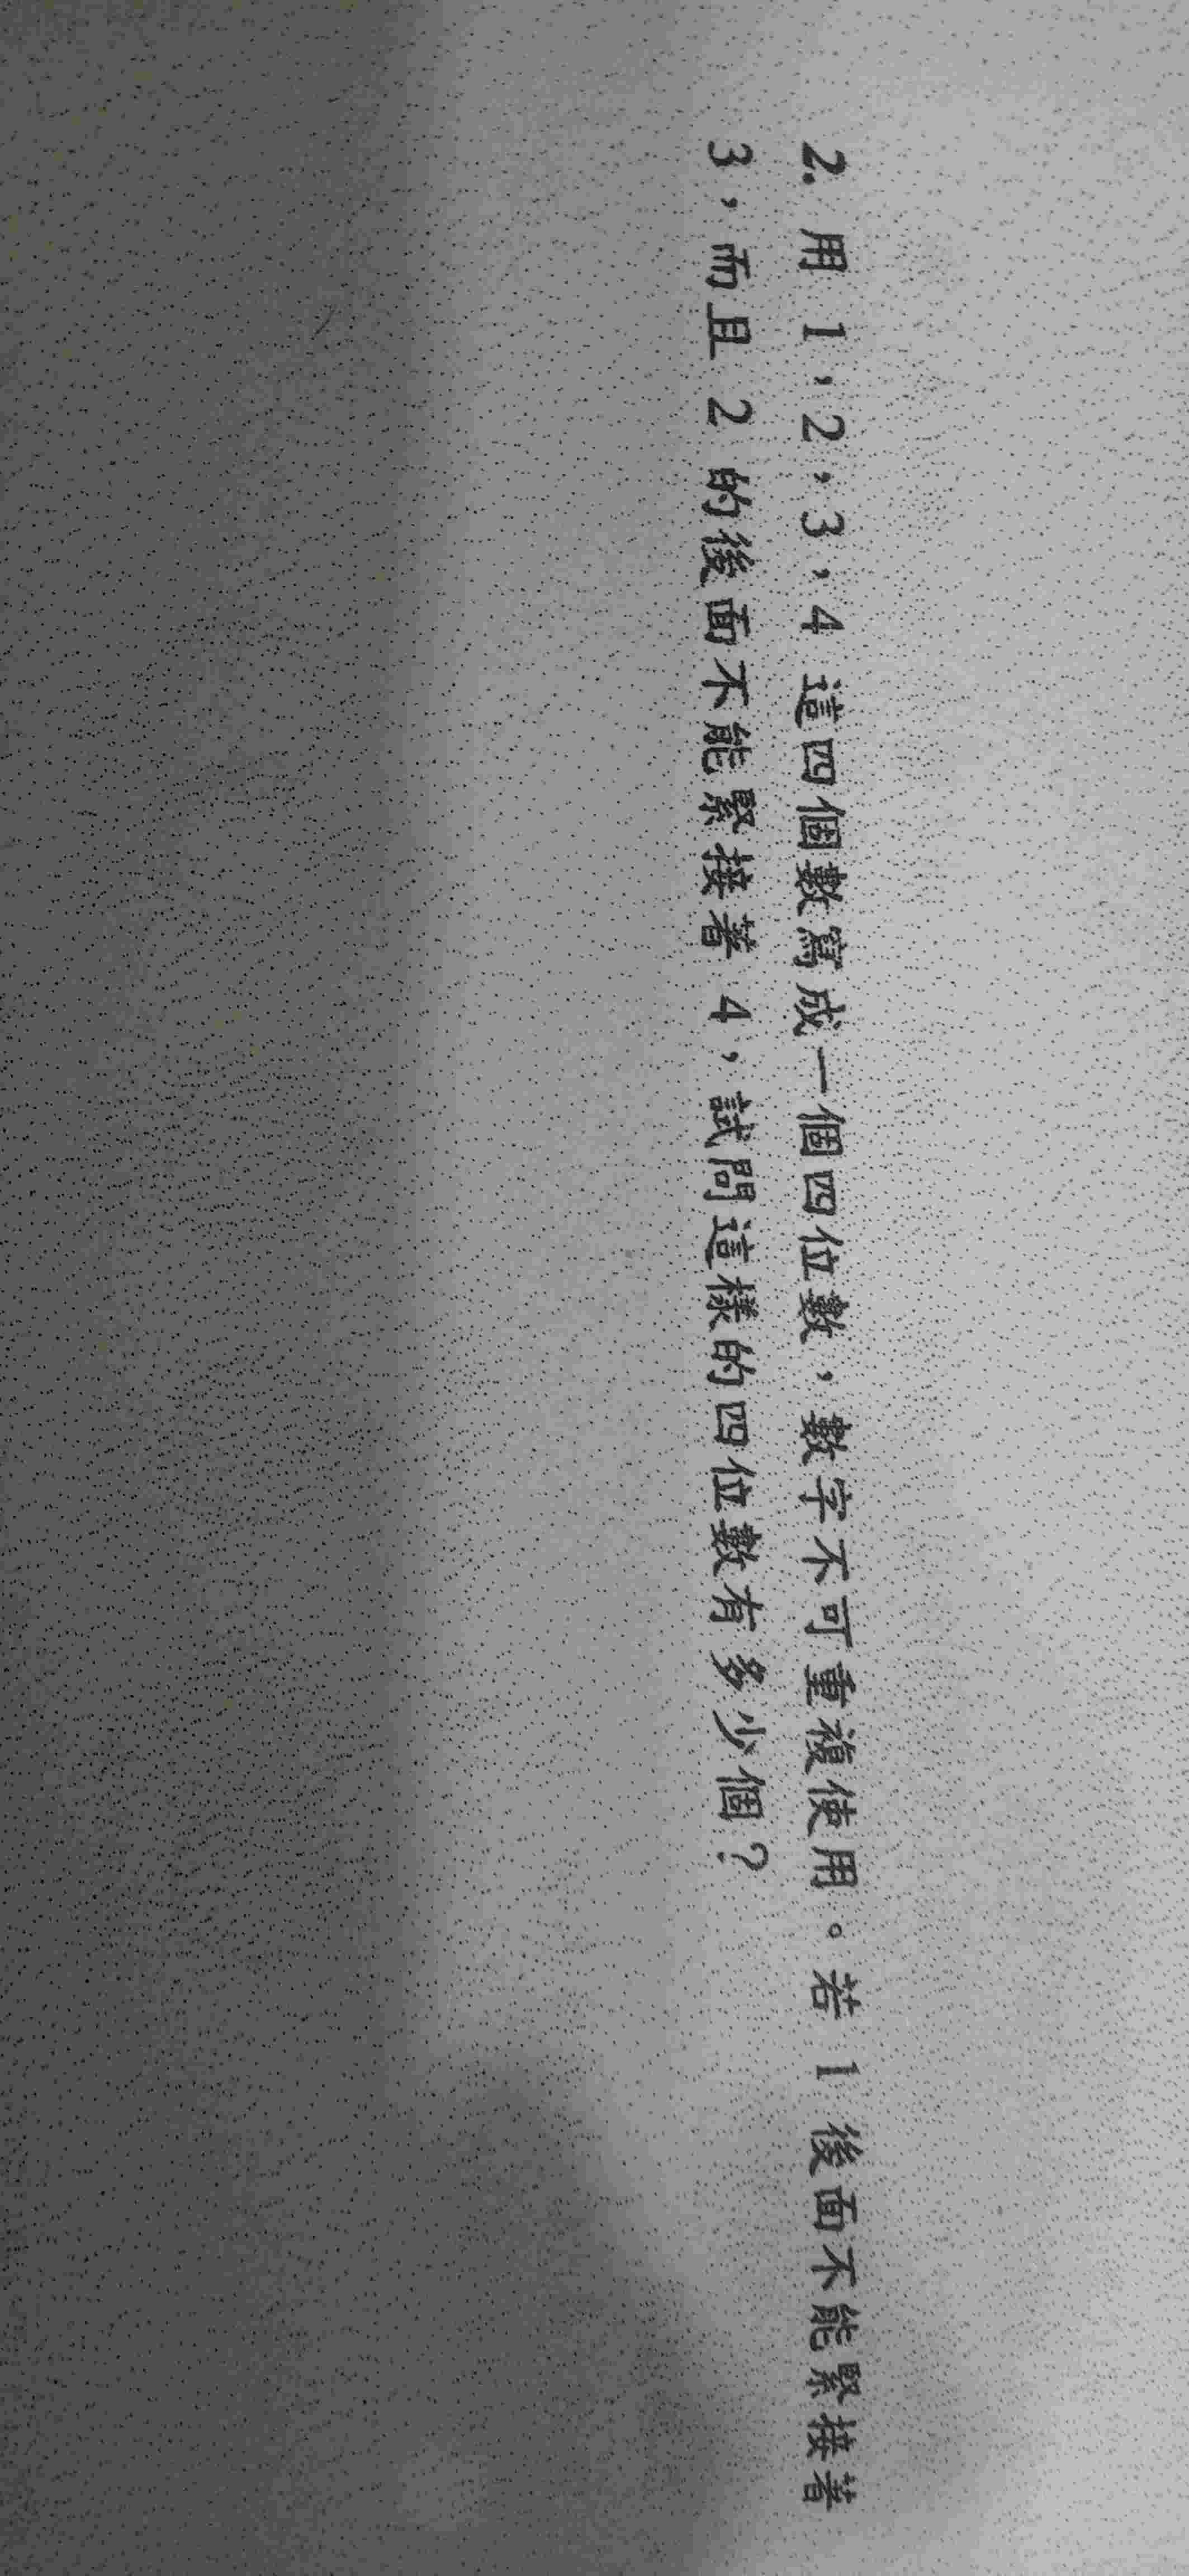 2. 用 1,2,3,4 這四個數寫成一個四位數,數字不可重複使用。若 1 後面不能緊接著
3,而且 2 的後面不能緊接著 4,試問這樣的四位數有多少個?